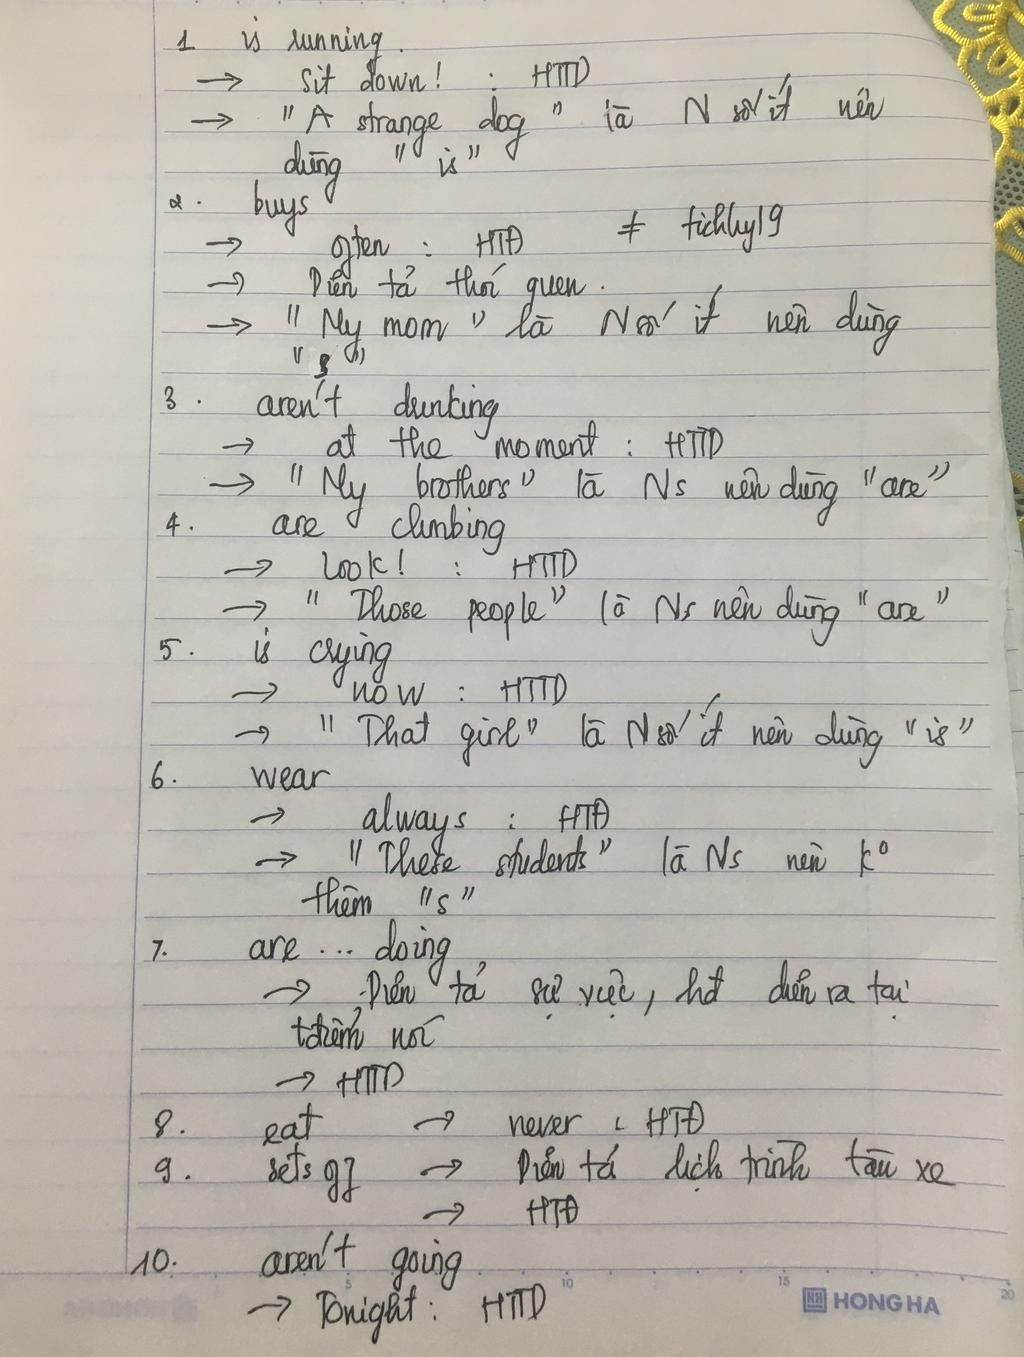 1 is running.
→ Sit down! : HTTD
→ "A strange dog" là N số ít nên
dùng "is"
2. buys
→ often : HTĐ # tichhy19
→ Diễn tả thói quen.
→ "My mom" là N số ít nên dùng
"s"
3. aren't drinking
→ at the moment : HTTD
→ "My brothers" là Ns nên dùng "are"
4. are climbing
→ Look! : HTTD
→ "Those people" là Ns nên dùng "are"
5. is crying
→ now : HTTD
→ "That girl" là N số ít nên dùng "is"
6. wear
→ always : HTĐ
→ "These students" là Ns nên ko
thêm "s"
7. are ... doing
→ Diễn tả sự việc, hđ diễn ra tại
tđiểm nói
→ HTTD
8. eat → never : HTĐ
9. sets off → Diễn tả lịch trình tàu xe
→ HTĐ
10. aren't going
→ Tonight : HTTD
5 10 15 20
HONG HA